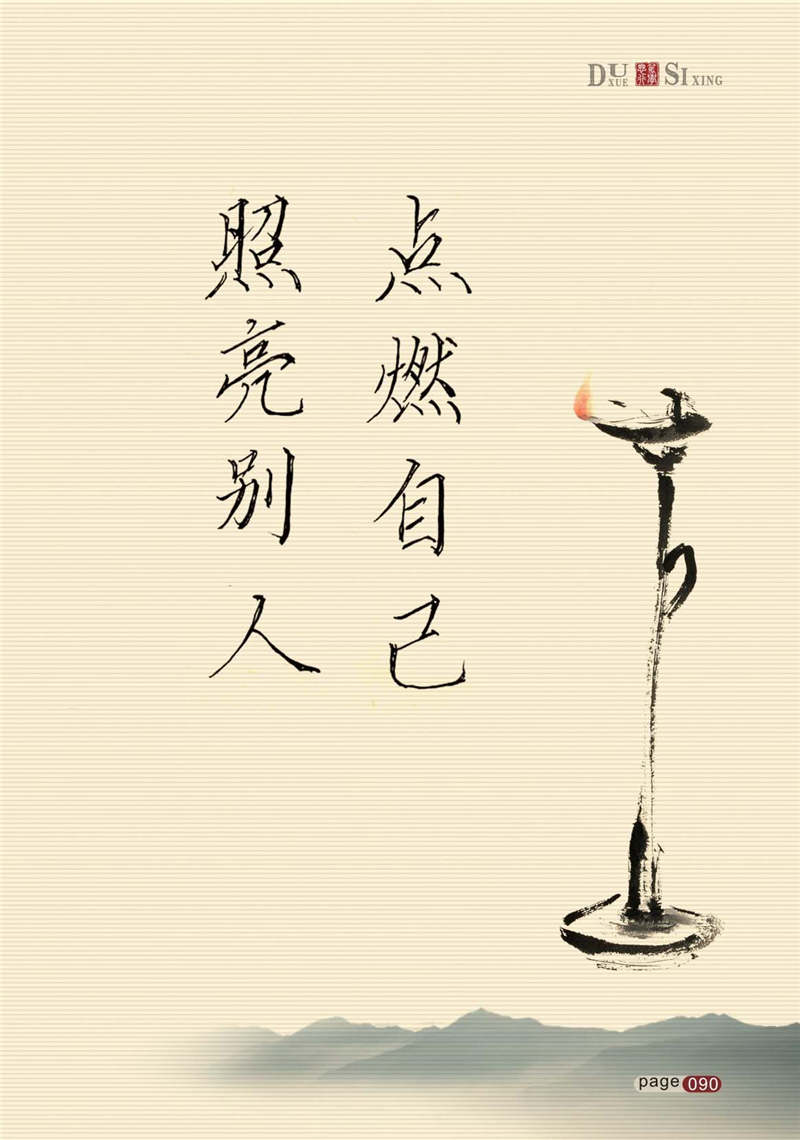 DUXUE SIXING
点燃自己
照亮别人
page 090